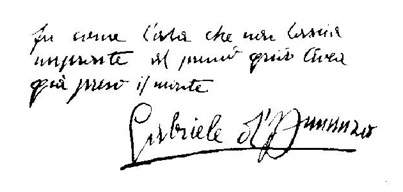 Fu come l'ala che non lascia
impronte al primo grido avea
già preso il monte
Gabriele d'Annunzio